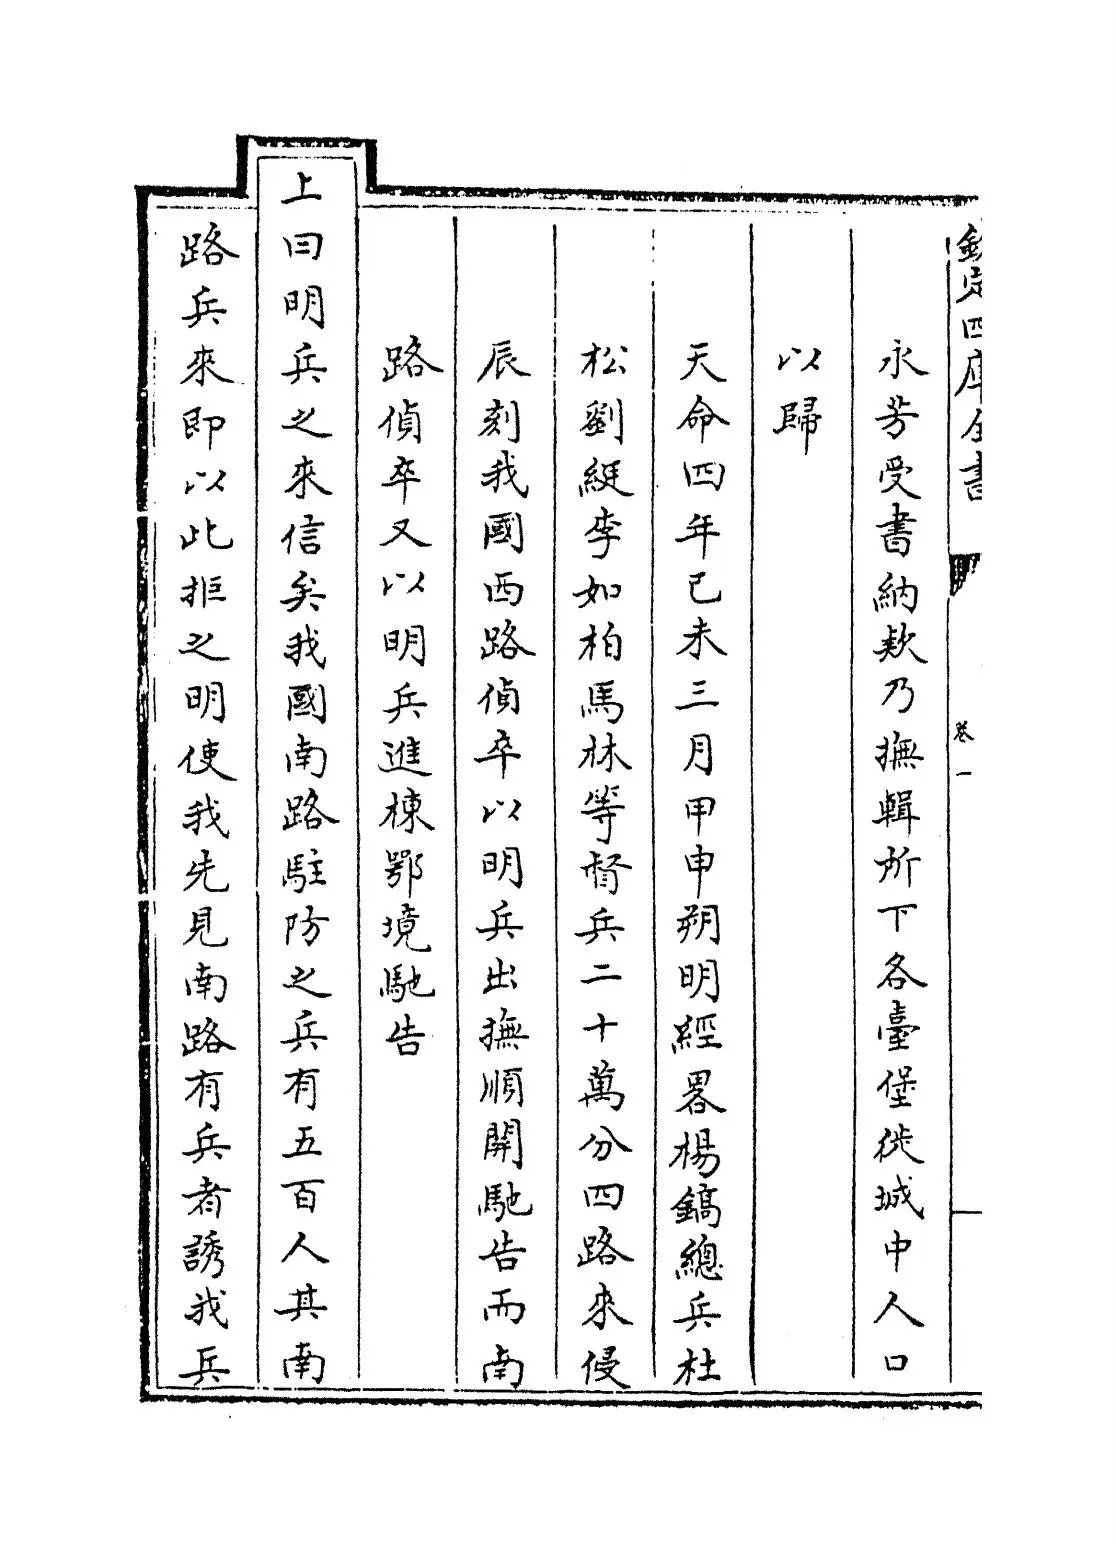 欽定四庫全書
卷一
永芳受書納欵乃撫輯所下各臺堡徙城中人口
以歸
天命四年己未三月甲申朔明經畧楊鎬總兵杜
松劉綎李如柏馬林等督兵二十萬分四路來侵
辰刻我國西路偵卒以明兵出撫順關馳告而南
路偵卒又以明兵進棟鄂境馳告
上曰明兵之來信矣我國南路駐防之兵有五百人其南
路兵來即以此拒之明使我先見南路有兵者誘我兵